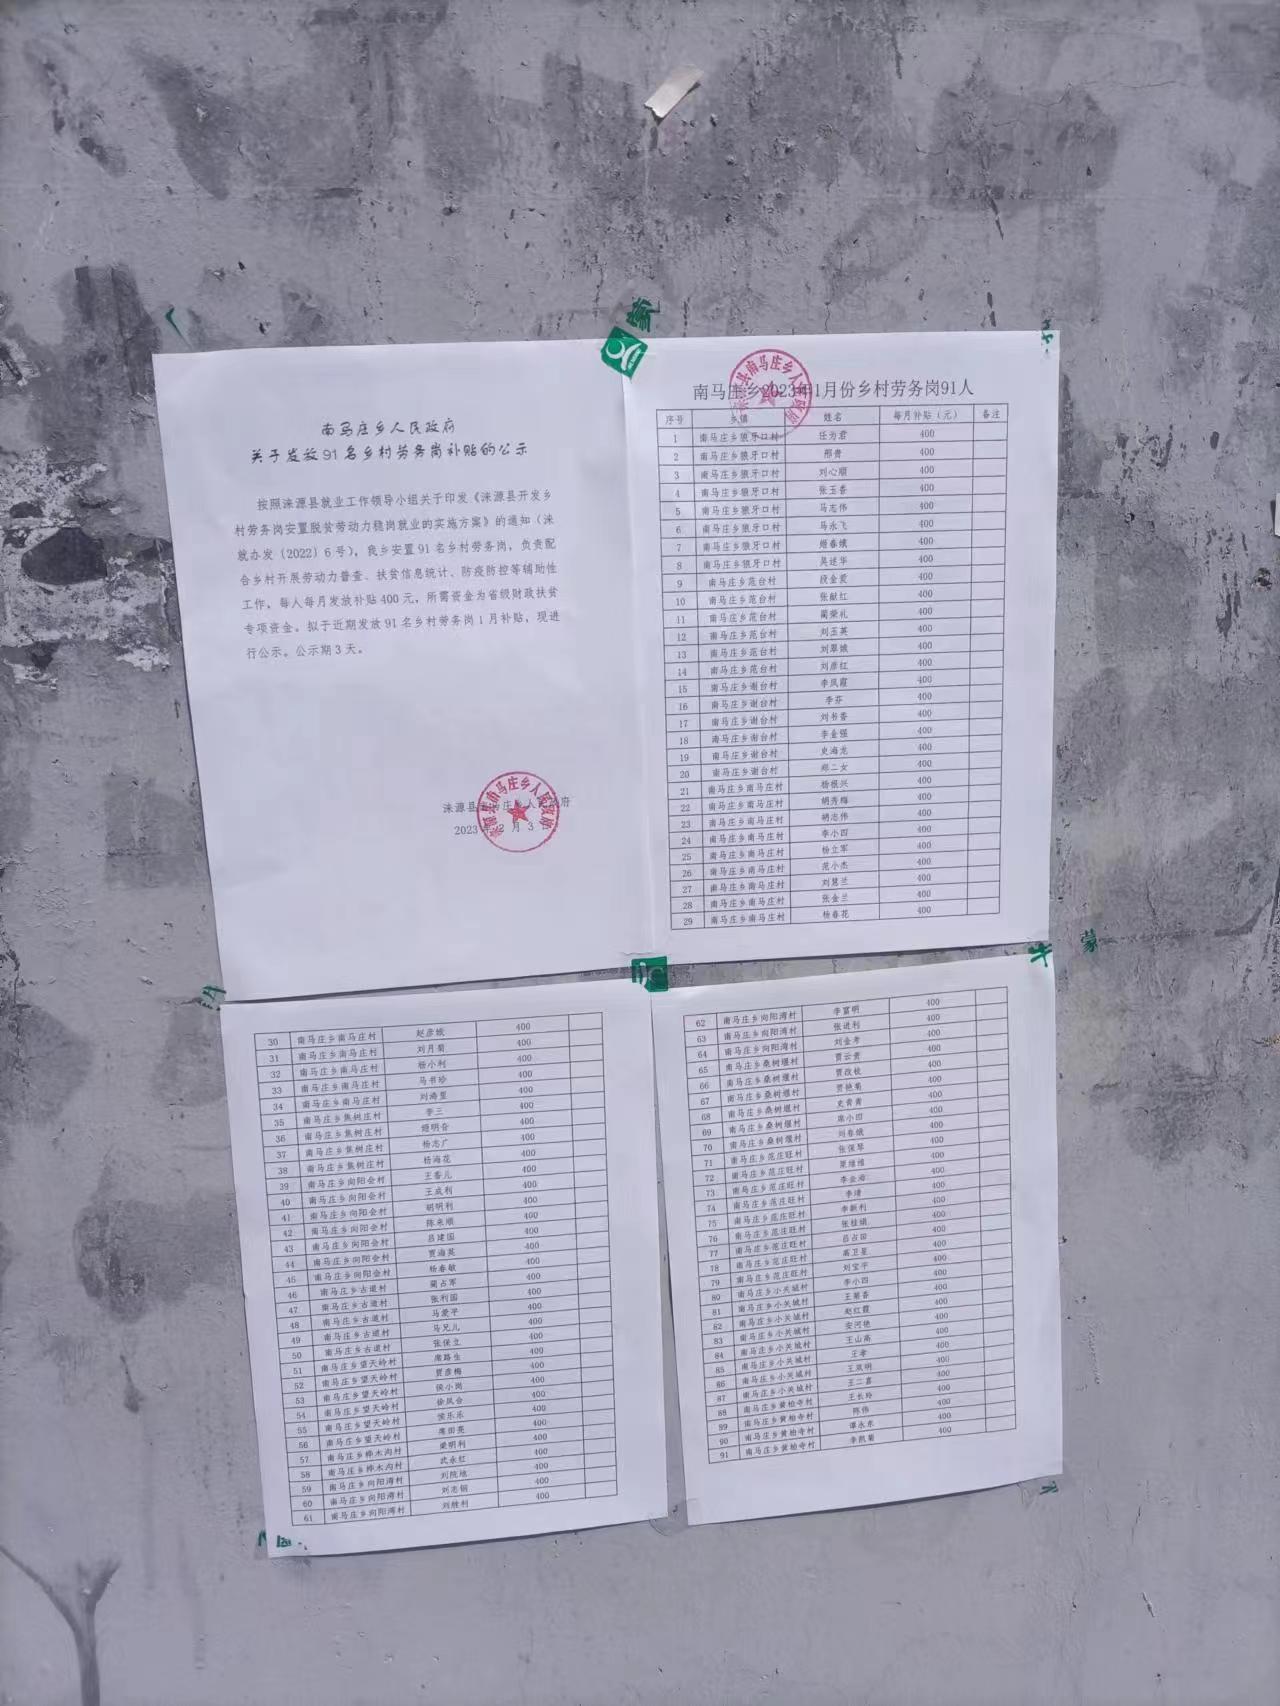 南马庄乡人民政府
关于发放91名乡村劳务岗补贴的公示
按照涞源县就业工作领导小组关于印发《涞源县开发乡
村劳务岗安置脱贫劳动力稳岗就业的实施方案》的通知（涞
就办发（2022）6号），我乡安置91名乡村劳务岗，负责配
合乡村开展劳动力普查、扶贫信息统计、防疫防控等辅助性
工作，每人每月发放补贴400元，所需资金为省级财政扶贫
专项资金。拟于近期发放91名乡村劳务岗1月补贴，现进
行公示。公示期3天。
涞源县南马庄乡人民政府
2023年2月3日
南马庄乡2023年1月份乡村劳务岗91人
序号 乡镇 姓名 每月补贴（元） 备注
1 南马庄乡狼牙口村 任为君 400
2 南马庄乡狼牙口村 邢青 400
3 南马庄乡狼牙口村 刘心顺 400
4 南马庄乡狼牙口村 张玉香 400
5 南马庄乡狼牙口村 马志伟 400
6 南马庄乡狼牙口村 马永飞 400
7 南马庄乡狼牙口村 姬春娥 400
8 南马庄乡狼牙口村 吴述华 400
9 南马庄乡范台村 段金爱 400
10 南马庄乡范台村 张献红 400
11 南马庄乡范台村 蔺荣礼 400
12 南马庄乡范台村 刘玉英 400
13 南马庄乡范台村 刘翠娥 400
14 南马庄乡范台村 刘彦红 400
15 南马庄乡谢台村 李凤霞 400
16 南马庄乡谢台村 李芬 400
17 南马庄乡谢台村 刘书香 400
18 南马庄乡谢台村 李金强 400
19 南马庄乡谢台村 史海龙 400
20 南马庄乡谢台村 郑二女 400
21 南马庄乡南马庄村 杨根兴 400
22 南马庄乡南马庄村 胡秀梅 400
23 南马庄乡南马庄村 胡志伟 400
24 南马庄乡南马庄村 李小四 400
25 南马庄乡南马庄村 杨立军 400
26 南马庄乡南马庄村 范小杰 400
27 南马庄乡南马庄村 刘慧兰 400
28 南马庄乡南马庄村 张金兰 400
29 南马庄乡南马庄村 杨春花 400
30 南马庄乡南马庄村 赵彦娥 400
31 南马庄乡南马庄村 刘月菊 400
32 南马庄乡南马庄村 杨小利 400
33 南马庄乡南马庄村 马书珍 400
34 南马庄乡南马庄村 刘海里 400
35 南马庄乡焦树庄村 李三 400
36 南马庄乡焦树庄村 400
37 南马庄乡焦树庄村 杨志广 400
38 南马庄乡焦树庄村 杨海花 400
39 南马庄乡向阳会村 王香儿 400
40 南马庄乡向阳会村 王成利 400
41 南马庄乡向阳会村 胡明利 400
42 南马庄乡向阳会村 陈来顺 400
43 南马庄乡向阳会村 吕建国 400
44 南马庄乡向阳会村 贾海英 400
45 南马庄乡向阳会村 杨春敏 400
46 南马庄乡古道村 蔺占军 400
47 南马庄乡古道村 张利国 400
48 南马庄乡古道村 马爱平 400
49 南马庄乡古道村 马兄儿 400
50 南马庄乡古道村 张保立 400
51 南马庄乡望天岭村 席路生 400
52 南马庄乡望天岭村 贾彦梅 400
53 南马庄乡望天岭村 侯小岗 400
54 南马庄乡望天岭村 徐凤合 400
55 南马庄乡望天岭村 侯乐乐 400
56 南马庄乡望天岭村 席田亮 400
57 南马庄乡桦木沟村 梁明利 400
58 南马庄乡桦木沟村 武永红 400
59 南马庄乡向阳湾村 刘院地 400
60 南马庄乡向阳湾村 刘志钢 400
61 南马庄乡向阳湾村 刘胜利 400
62 南马庄乡向阳湾村 李富明 400
63 南马庄乡向阳湾村 张进利 400
64 南马庄乡向阳湾村 刘金考 400
65 南马庄乡桑树堰村 贾云贵 400
66 南马庄乡桑树堰村 贾改枝 400
67 南马庄乡桑树堰村 贾艳菊 400
68 南马庄乡桑树堰村 史青青 400
69 南马庄乡桑树堰村 席小四 400
70 南马庄乡桑树堰村 刘春娥 400
71 南马庄乡范庄旺村 张保琴 400
72 南马庄乡范庄旺村 400
73 南马庄乡范庄旺村 李金海 400
74 南马庄乡范庄旺村 李靖 400
75 南马庄乡范庄旺村 李新利 400
76 南马庄乡范庄旺村 张桂娟 400
77 南马庄乡范庄旺村 吕占田 400
78 南马庄乡范庄旺村 高卫星 400
79 南马庄乡范庄旺村 刘宝平 400
80 南马庄乡小关城村 李小四 400
81 南马庄乡小关城村 王菊香 400
82 南马庄乡小关城村 赵红霞 400
83 南马庄乡小关城村 安河艳 400
84 南马庄乡小关城村 王山高 400
85 南马庄乡小关城村 王孝 400
86 南马庄乡小关城村 王双明 400
87 南马庄乡小关城村 王二喜 400
88 南马庄乡黄柏寺村 王长玲 400
89 南马庄乡黄柏寺村 陈伟 400
90 南马庄乡黄柏寺村 谭永东 400
91 南马庄乡黄柏寺村 李凯菊 400